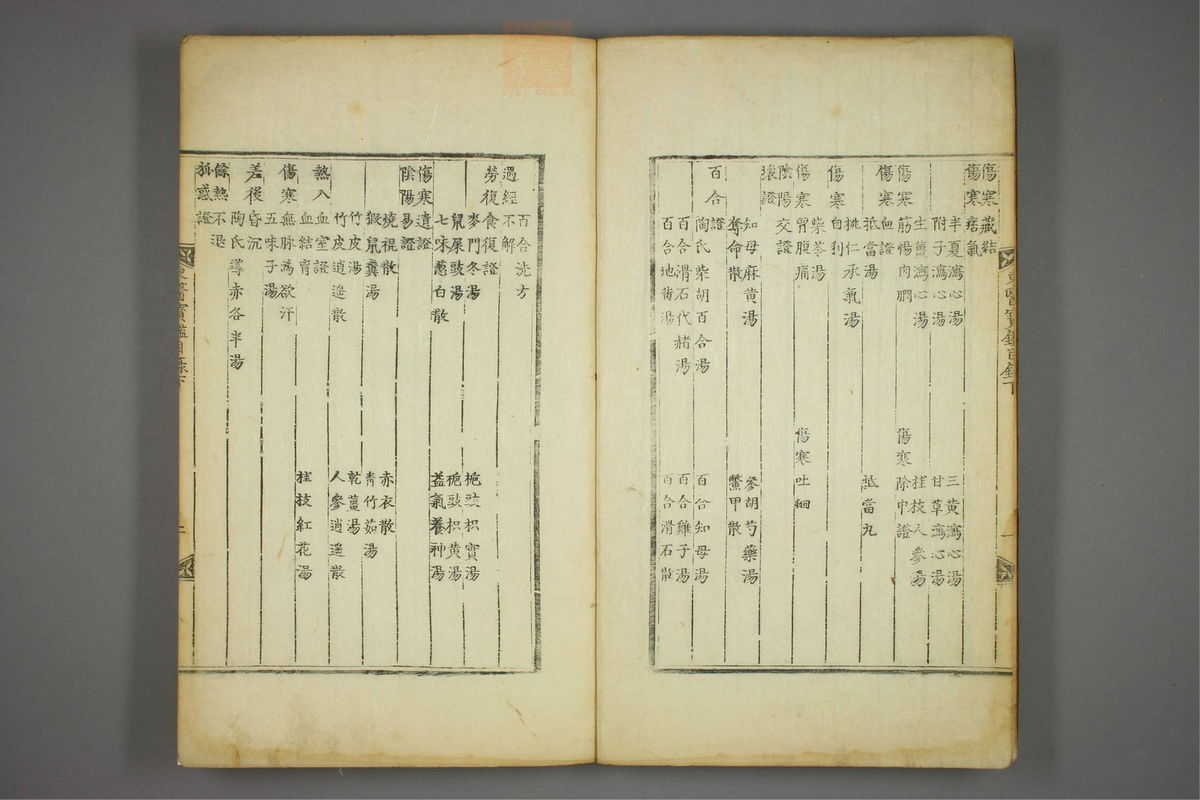 傷寒藏結
傷寒痞氣
半夏瀉心湯
三黃瀉心湯
附子瀉心湯
甘草瀉心湯
生薑瀉心湯
桂枝人參湯
傷寒筋惕肉瞤
傷寒除中證
傷寒血證
抵當湯
抵當丸
桃仁承氣湯
傷寒自利
柴苓湯
傷寒胃腹痛
傷寒吐蛔
陰陽交證
壞證
知母麻黃湯
參胡芍藥湯
奪命散
鱉甲散
百合證
陶氏柴胡百合湯
百合知母湯
百合滑石代赭湯
百合雞子湯
百合地黃湯
百合滑石散
東醫寶鑑目錄下
百合洗方
過經不解
勞復食復證
麥門冬湯
梔豉枳實湯
鼠屎豉湯
梔豉枳黃湯
七味葱白散
益氣養神湯
傷寒遺證
陰陽易證
燒裩散
赤衣散
猳鼠糞湯
青竹茹湯
竹皮湯
乾薑湯
竹皮逍遙散
人參逍遙散
熱入血室證
血結胷
桂枝紅花湯
五味子湯
傷寒無脉為欲汗
差後昏沉
陶氏導赤各半湯
餘熱不退
狐惑證
東醫寶鑑目錄下
二